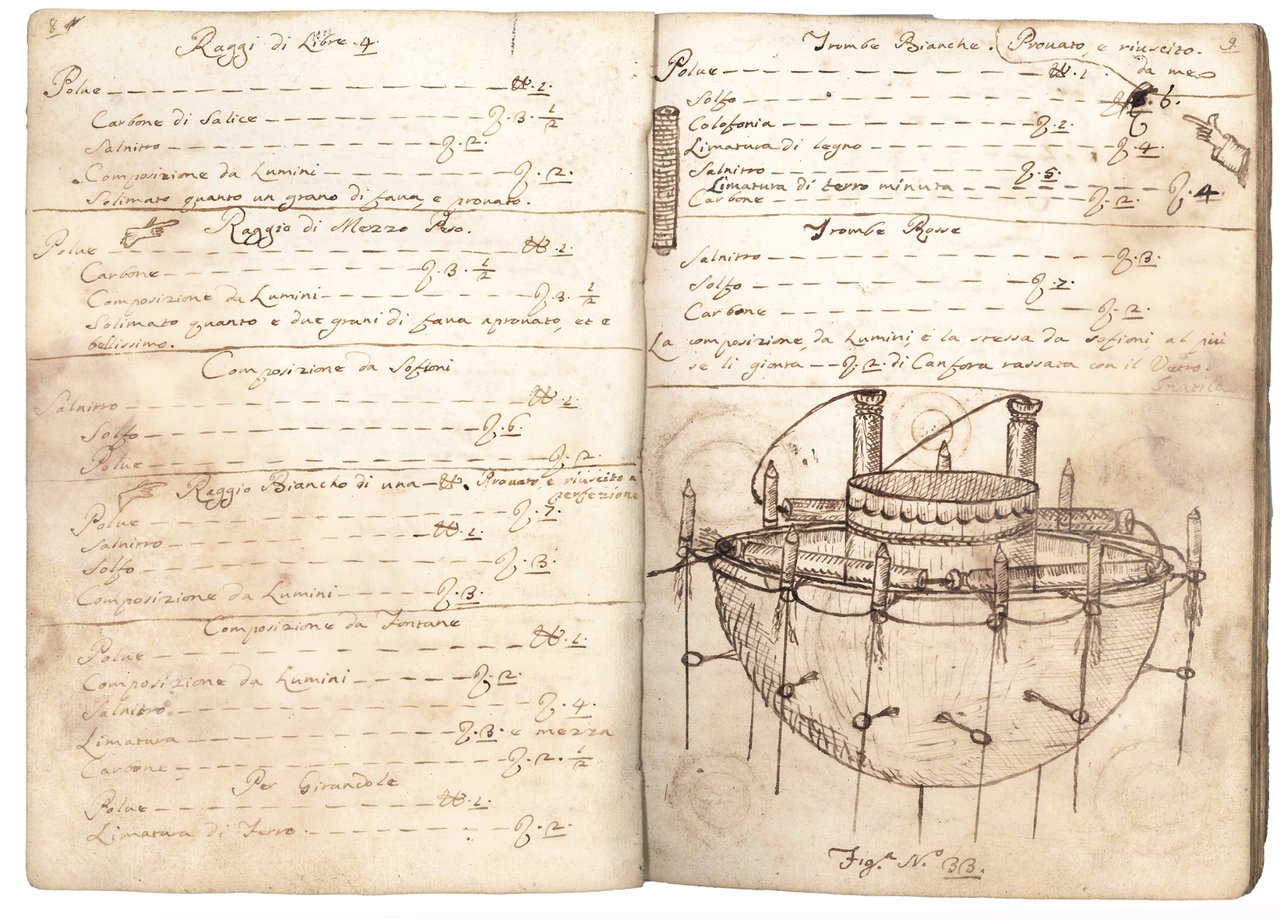 8
Raggi di Libre 4
Polue — ℔. 1.
Carbone di Salice — ℥. 3. 1/2
Salnitro — ℥. 2.
Composizione da Lumini — ℥. 2.
Solimato quanto un grano di faua, e prouato.
Raggio di Mezzo Peso.
Polue — ℔. 1.
Carbone — ℥. 3 1/2
Composizione da Lumini — ℥. 3 1/2
Solimato quanto e due grani di faua aprouato, et e
bellissimo.
Composizione da Sofioni
Salnitro — ℔. 1.
Solfo — ℥. 6.
Polue — ℥. 2.
Raggio Biancho di una — ℔. Prouato, e riuscito a
perfezione
Polue — ℥. 7.
Salnitro — ℔. 1.
Solfo — ℥. 3.
Composizione da Lumini — ℥. 3.
Composizione da Fontane
Polue — ℔. 1.
Composizione da Lumini — ℥. 2.
Salnitro — ℥. 4.
Limatura — ℥. 3. e mezza
Carbone — ℥. 2. 1/2
Per Girandole
Polue — ℔. 1.
Limatura di Ferro — ℥. 2.
9.
Trombe Bianche. Prouato, e riuscito.
da me
Polue — ℔. 1
Solfo — 6.
Colofonia — ℥. 2.
Limatura di legno — ℥. 4
Salnitro — ℥. 5
Limatura di ferro minuta — ℥. 4
Carbone — ℥. 2.
Trombe Rosse
Salnitro — ℥. 3.
Solfo — ℥. 2.
Carbone — ℥. 2.
La composizione da Lumini e la stessa da sofioni al più
se li gionta — ℥. 2. di Canfora rassata con il Vetro.
Fig.ª N.º 33.